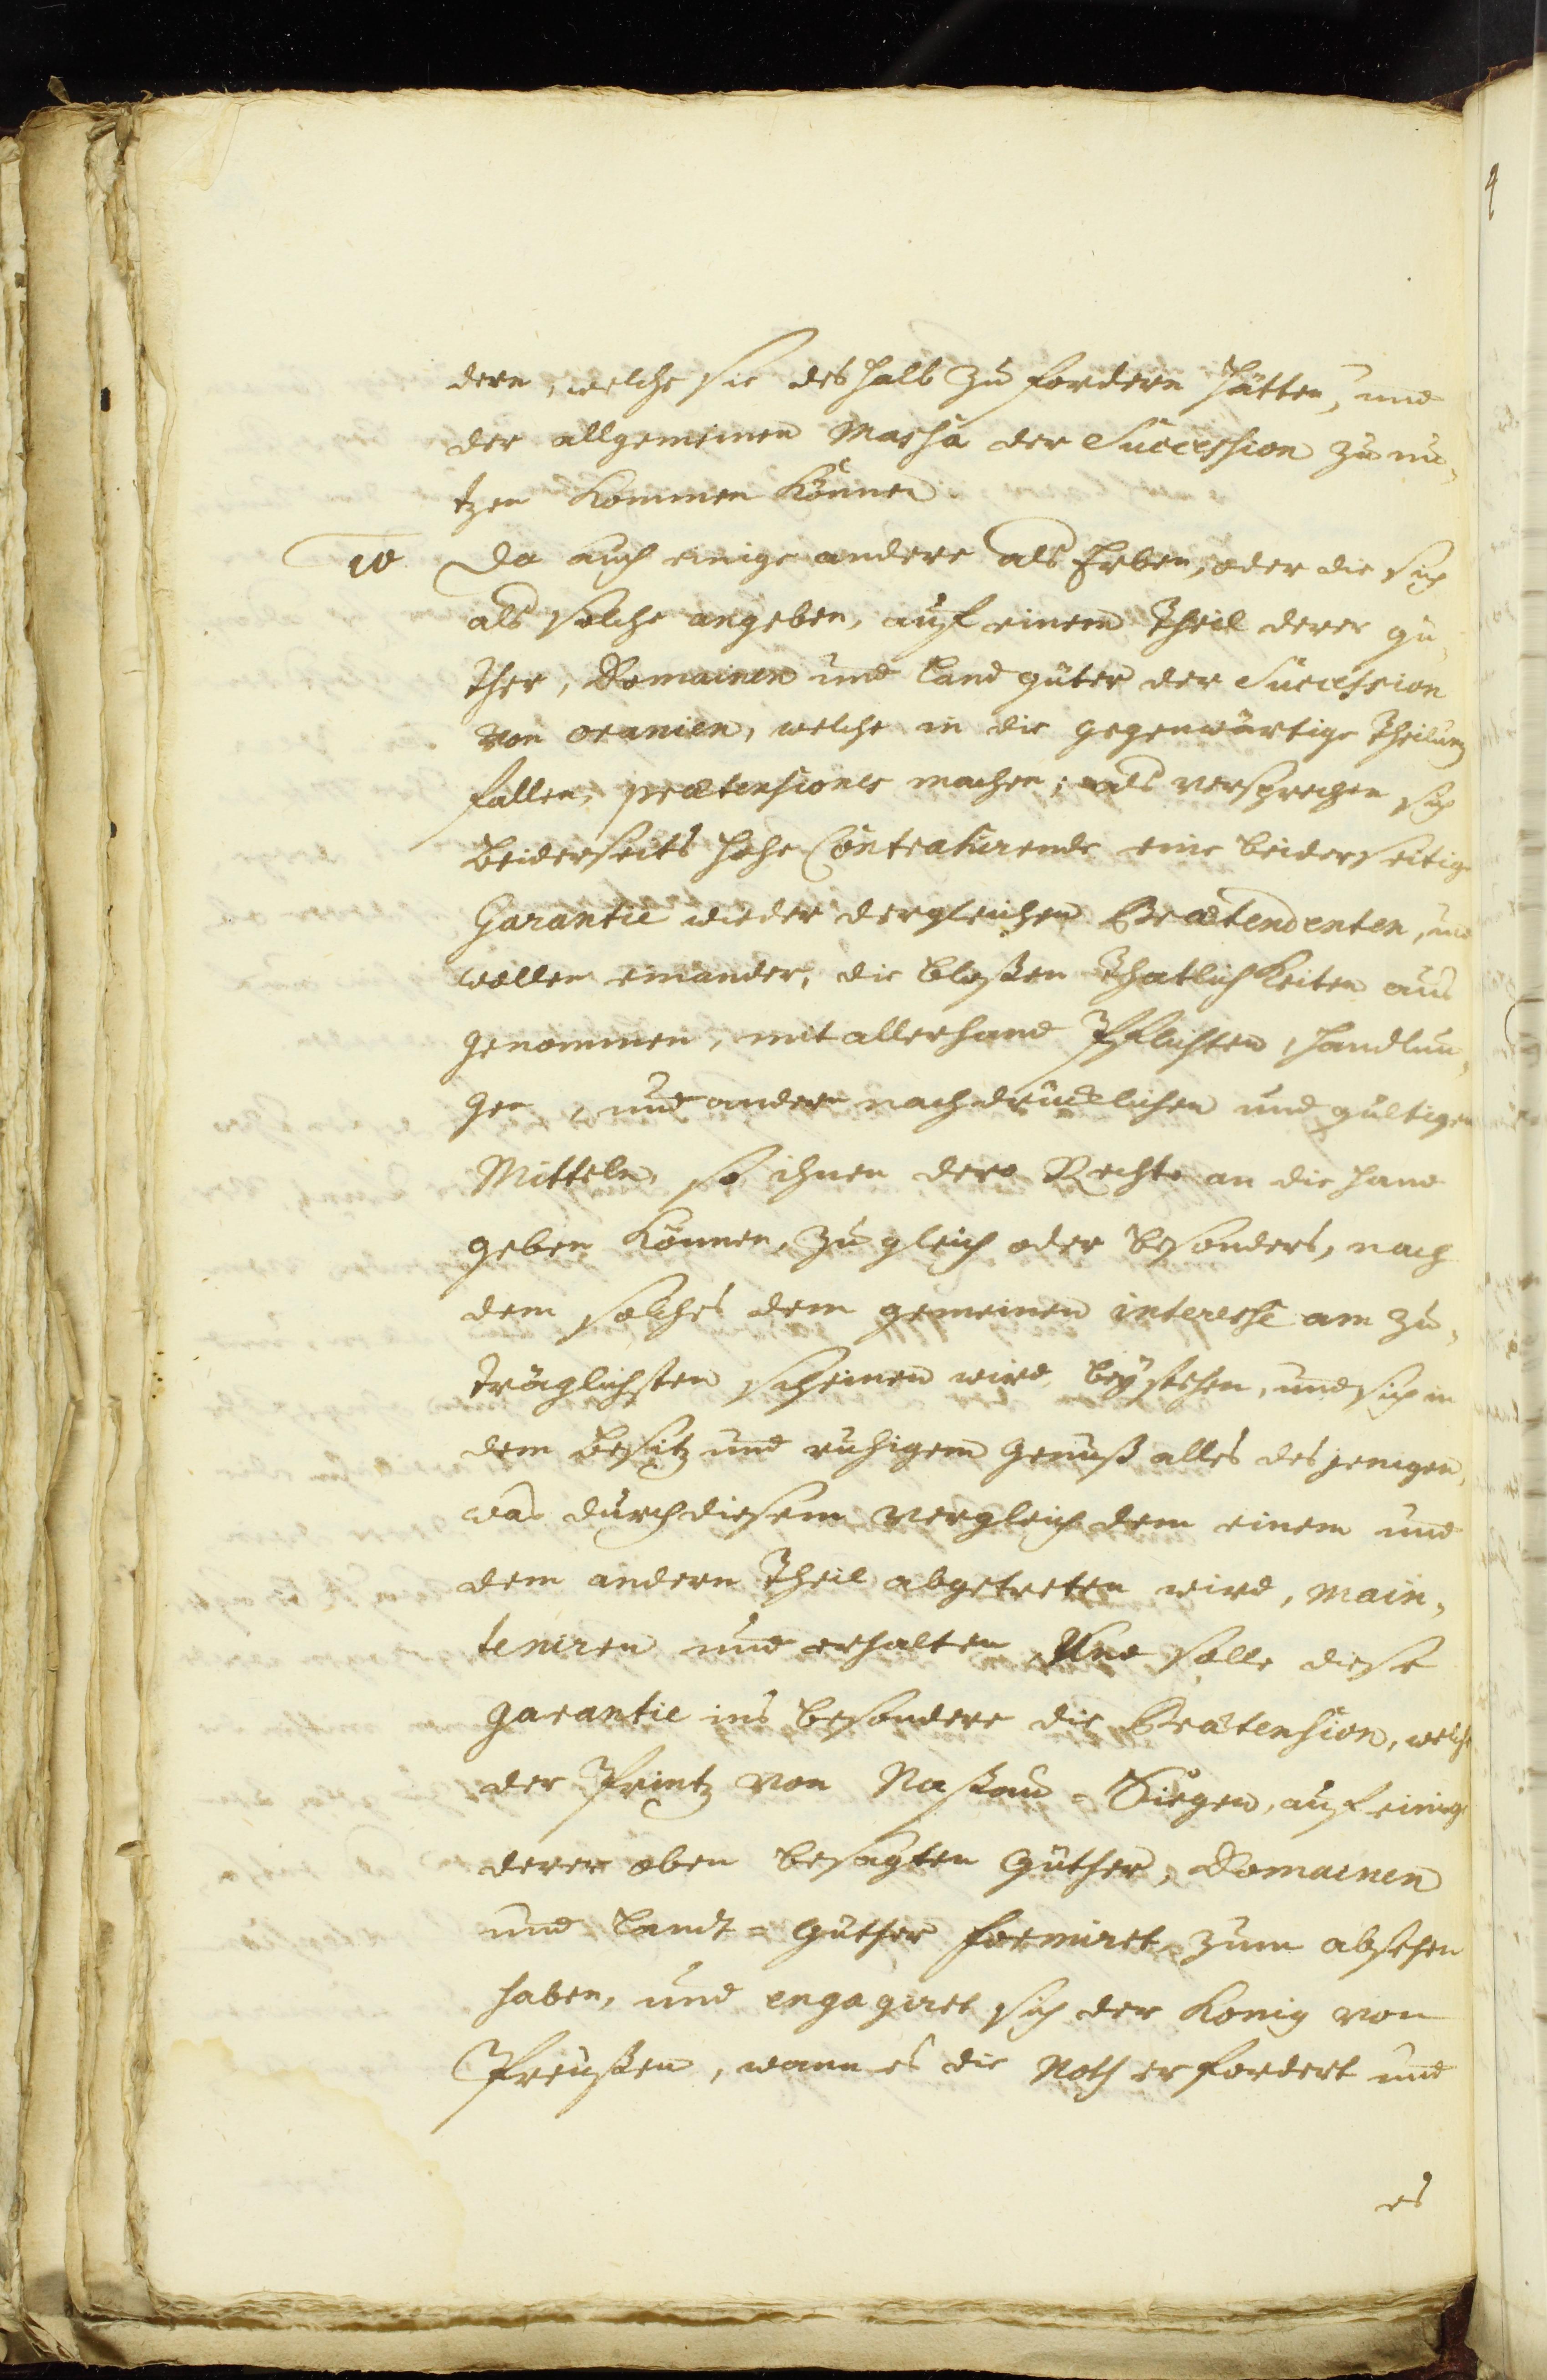 dern, welche sie deshalb zu fordern hätten, und
der allgemeinen Massa der Succession zu nu-
tzen kommen können.
10. Da auch einige andere als Erben, oder die sich
als solche angeben, auf einem Theil derer gü-
ther, Domainen und Land güter der Succession
von oranien, welche in die gegenwärtige Theilung
fallen, prætensiones machen; als versprechen sich
beiderseits hohe Contrahirende eine beiderseitige
Garantie wieder dergleichen Prætendenten, und
wollen einander, die bloßen Thatlichkeiten aus
genommen, mit allerhand Pflichten, handlun-
gen, und andern nachdrücklichen und gültigen
Mitteln, so ihnen dero Rechte an die hand
geben können, zugleich oder besonders, nach
dem solches dem gemeinen interesse am zu-
träglichsten scheinen wird, beystehen, und sich in
dem besitz und ruhigem genuß alles desjenigen,
was durch diesem vergleich dem einem und
dem andern Theil abgetreten wird, main-
teniren und erhalten, Und solle diese
garantie ins besondere die Prætension, welche
der Printz von Naßau-Siegen, auf einige
derer oben besagten Güther, Domainen
und Landt-Güther formiret, zum absehen
haben, und engagiret sich der König von
Preußen, wann es die Noth erfordert und
es